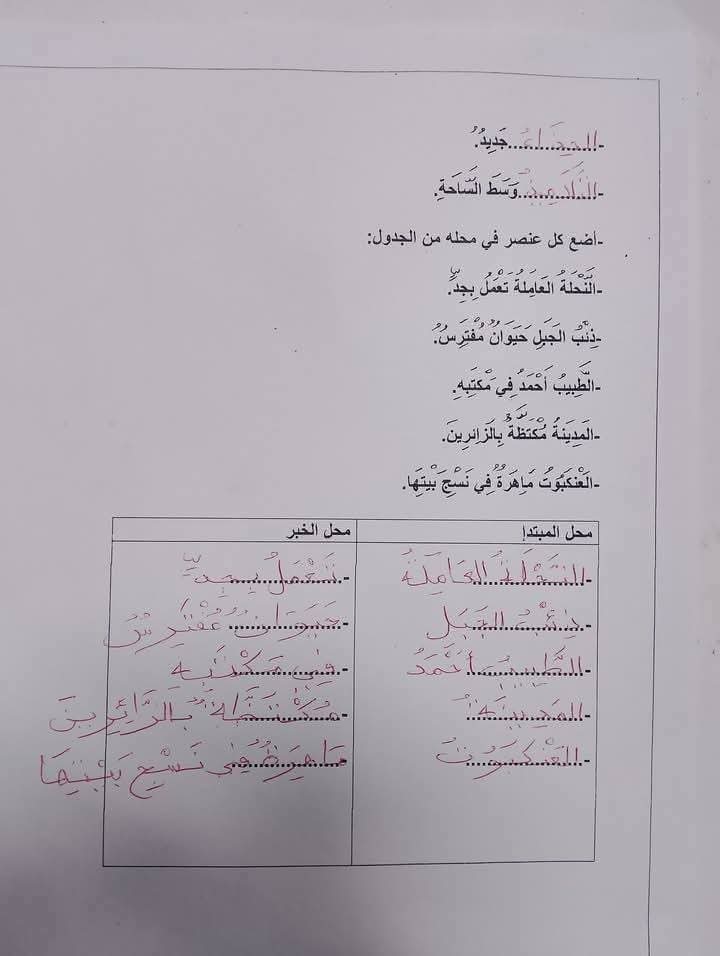 -الحِذَاءُ جَدِيدٌ.
-التَّلَامِيذُ وَسَطَ السَّاحَةِ.
-أضع كل عنصر في محله من الجدول:
-النَّحْلَةُ العَامِلَةُ تَعْمَلُ بِجِدٍّ.
-ذِئْبُ الجَبَلِ حَيَوَانٌ مُفْتَرِسٌ.
-الطَّبِيبُ أَحْمَدُ فِي مَكْتَبِهِ.
-المَدِينَةُ مُكْتَظَّةٌ بِالزَائِرِينَ.
-العَنْكَبُوتُ مَاهِرَةٌ فِي نَسْجِ بَيْتِهَا.
محل المبتدإ محل الخبر
-النَّحْلَةُ العَامِلَةُ -تَعْمَلُ بِجِدٍّ
-ذِئْبُ الجَبَلِ -حَيَوَانٌ مُفْتَرِسٌ
-الطَّبِيبُ أَحْمَدُ -فِي مَكْتَبِهِ
-المَدِينَةُ -مُكْتَظَّةٌ بِالزَّائِرِينَ
-العَنْكَبُوتُ -مَاهِرَةٌ فِي نَسْجِ بَيْتِهَا